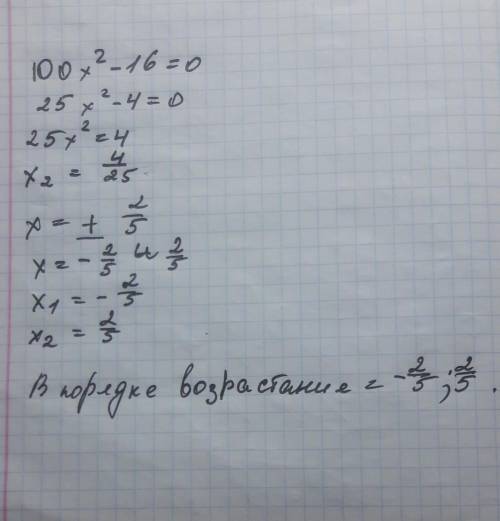 100x² - 16 = 0
25x² - 4 = 0
25x² = 4
x₂ = 4/25
x = ± 2/5
x = - 2/5 и 2/5
x₁ = - 2/5
x₂ = 2/5
В порядке возрастание = - 2/5 ; 2/5 .